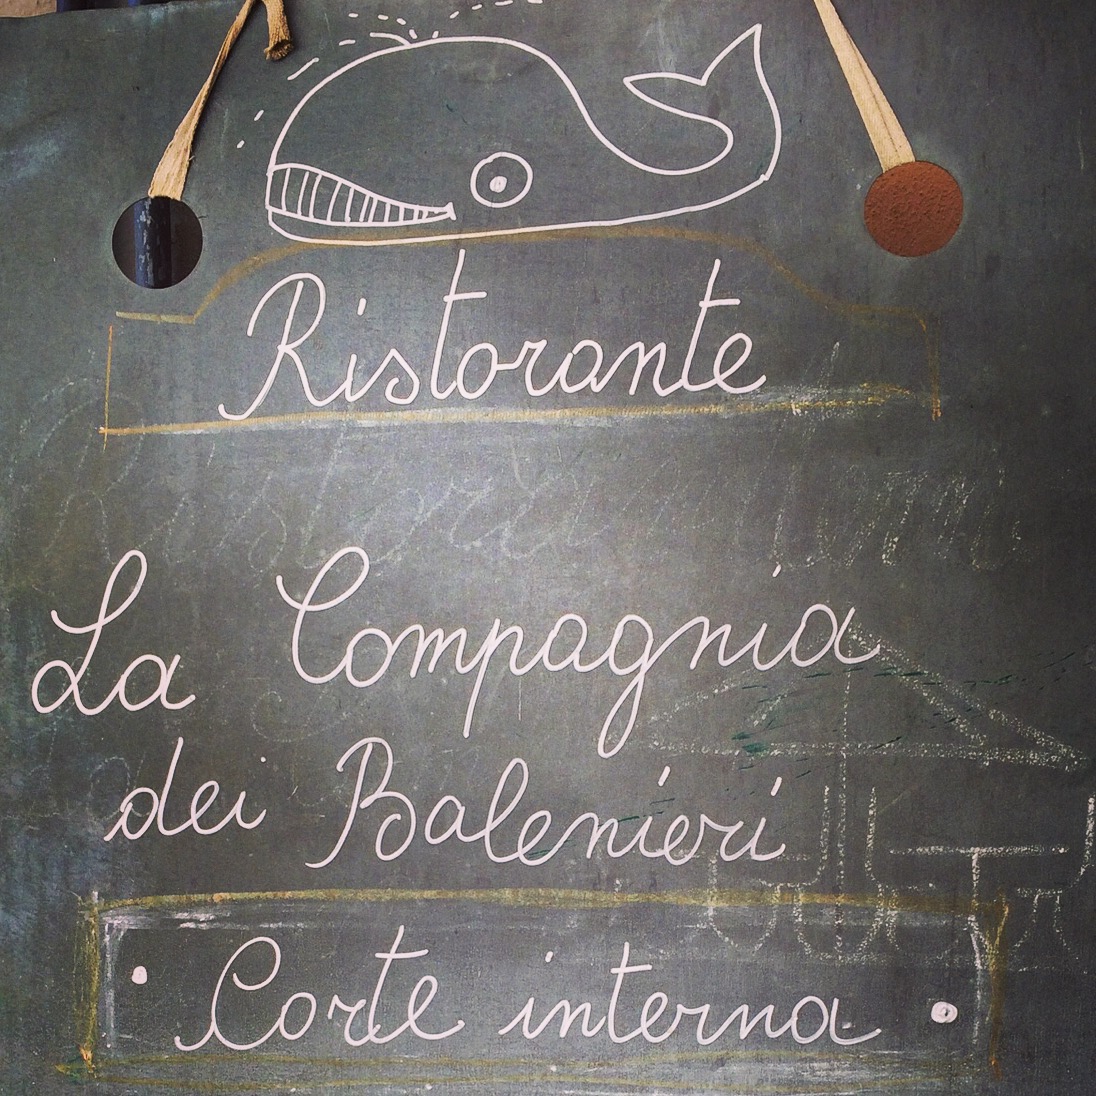 Ristorante
La Compagnia
dei Balenieri
Corte interna